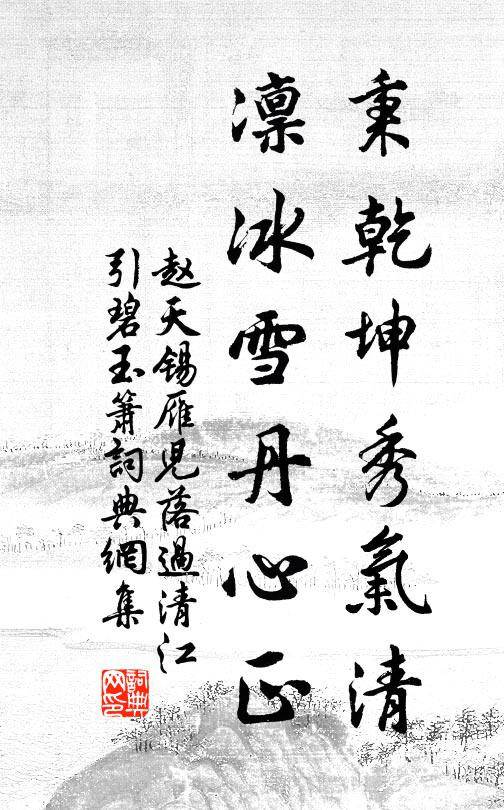 秉乾坤秀氣清
凛冰雪丹心正
赵天锡雁児落過清江
引碧玉箫詞典網集
詞典
网印